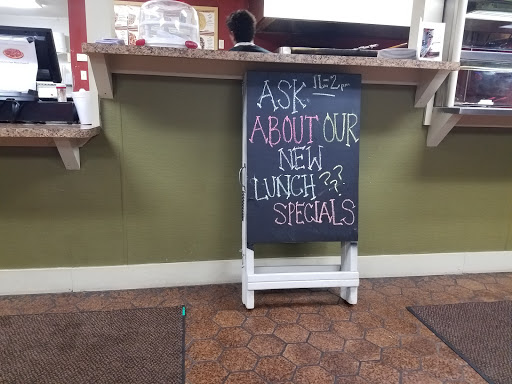 ASK 11-2pm
ABOUT OUR
NEW
LUNCH ??
SPECIALS